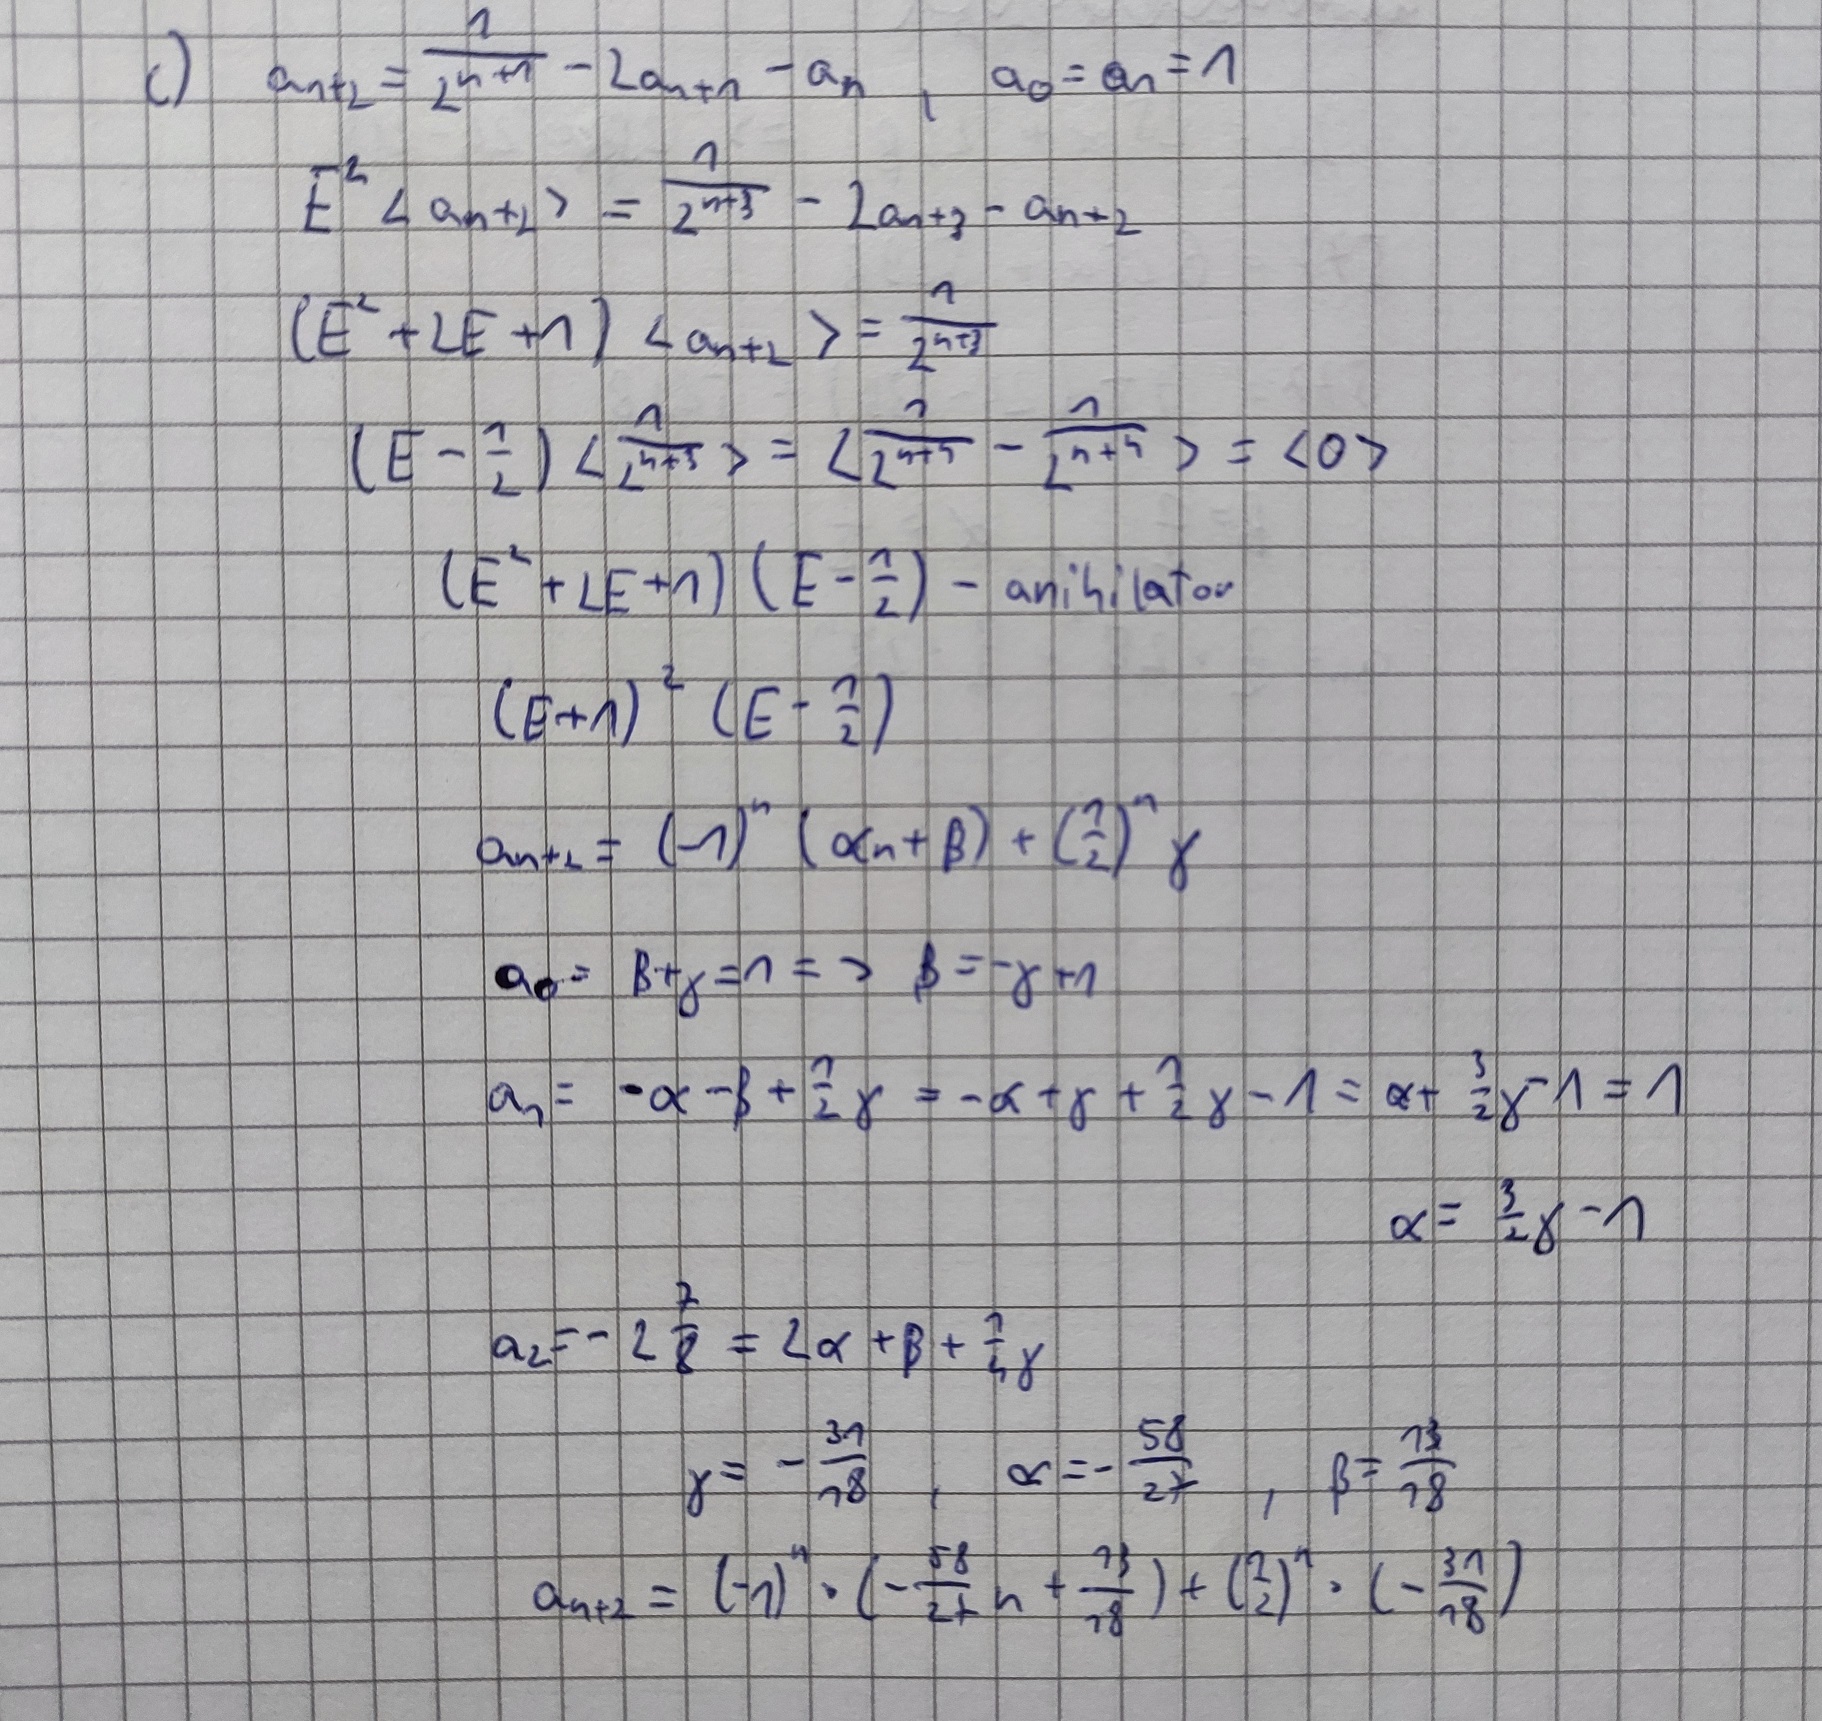 c) aₙ₊₂ = 1/2ⁿ⁺¹ - 2aₙ₊₁ - aₙ , a₀ = a₁ = 1
E² <aₙ₊₂> = 1/2ⁿ⁺³ - 2aₙ₊₃ - aₙ₊₂
(E² + 2E + 1) <aₙ₊₂> = 1/2ⁿ⁺³
(E - 1/2) <1/2ⁿ⁺³> = <1/2ⁿ⁺⁴ - 1/2ⁿ⁺⁴> = <0>
(E² + 2E + 1) (E - 1/2) - anihilator
(E + 1)² (E - 1/2)
aₙ₊₂ = (-1)ⁿ (αn + β) + (1/2)ⁿ γ
a₀ = β + γ = 1 => β = -γ + 1
a₁ = -α - β + 1/2 γ = -α + γ + 1/2 γ - 1 = α + 3/2 γ - 1 = 1
α = 3/2 γ - 1
a₂ = - 2 7/8 = 2α + β + 1/4 γ
γ = - 31/18 , α = - 58/27 , β = 13/18
aₙ₊₂ = (-1)ⁿ · (- 58/27 n + 13/18) + (1/2)ⁿ · (- 31/18)